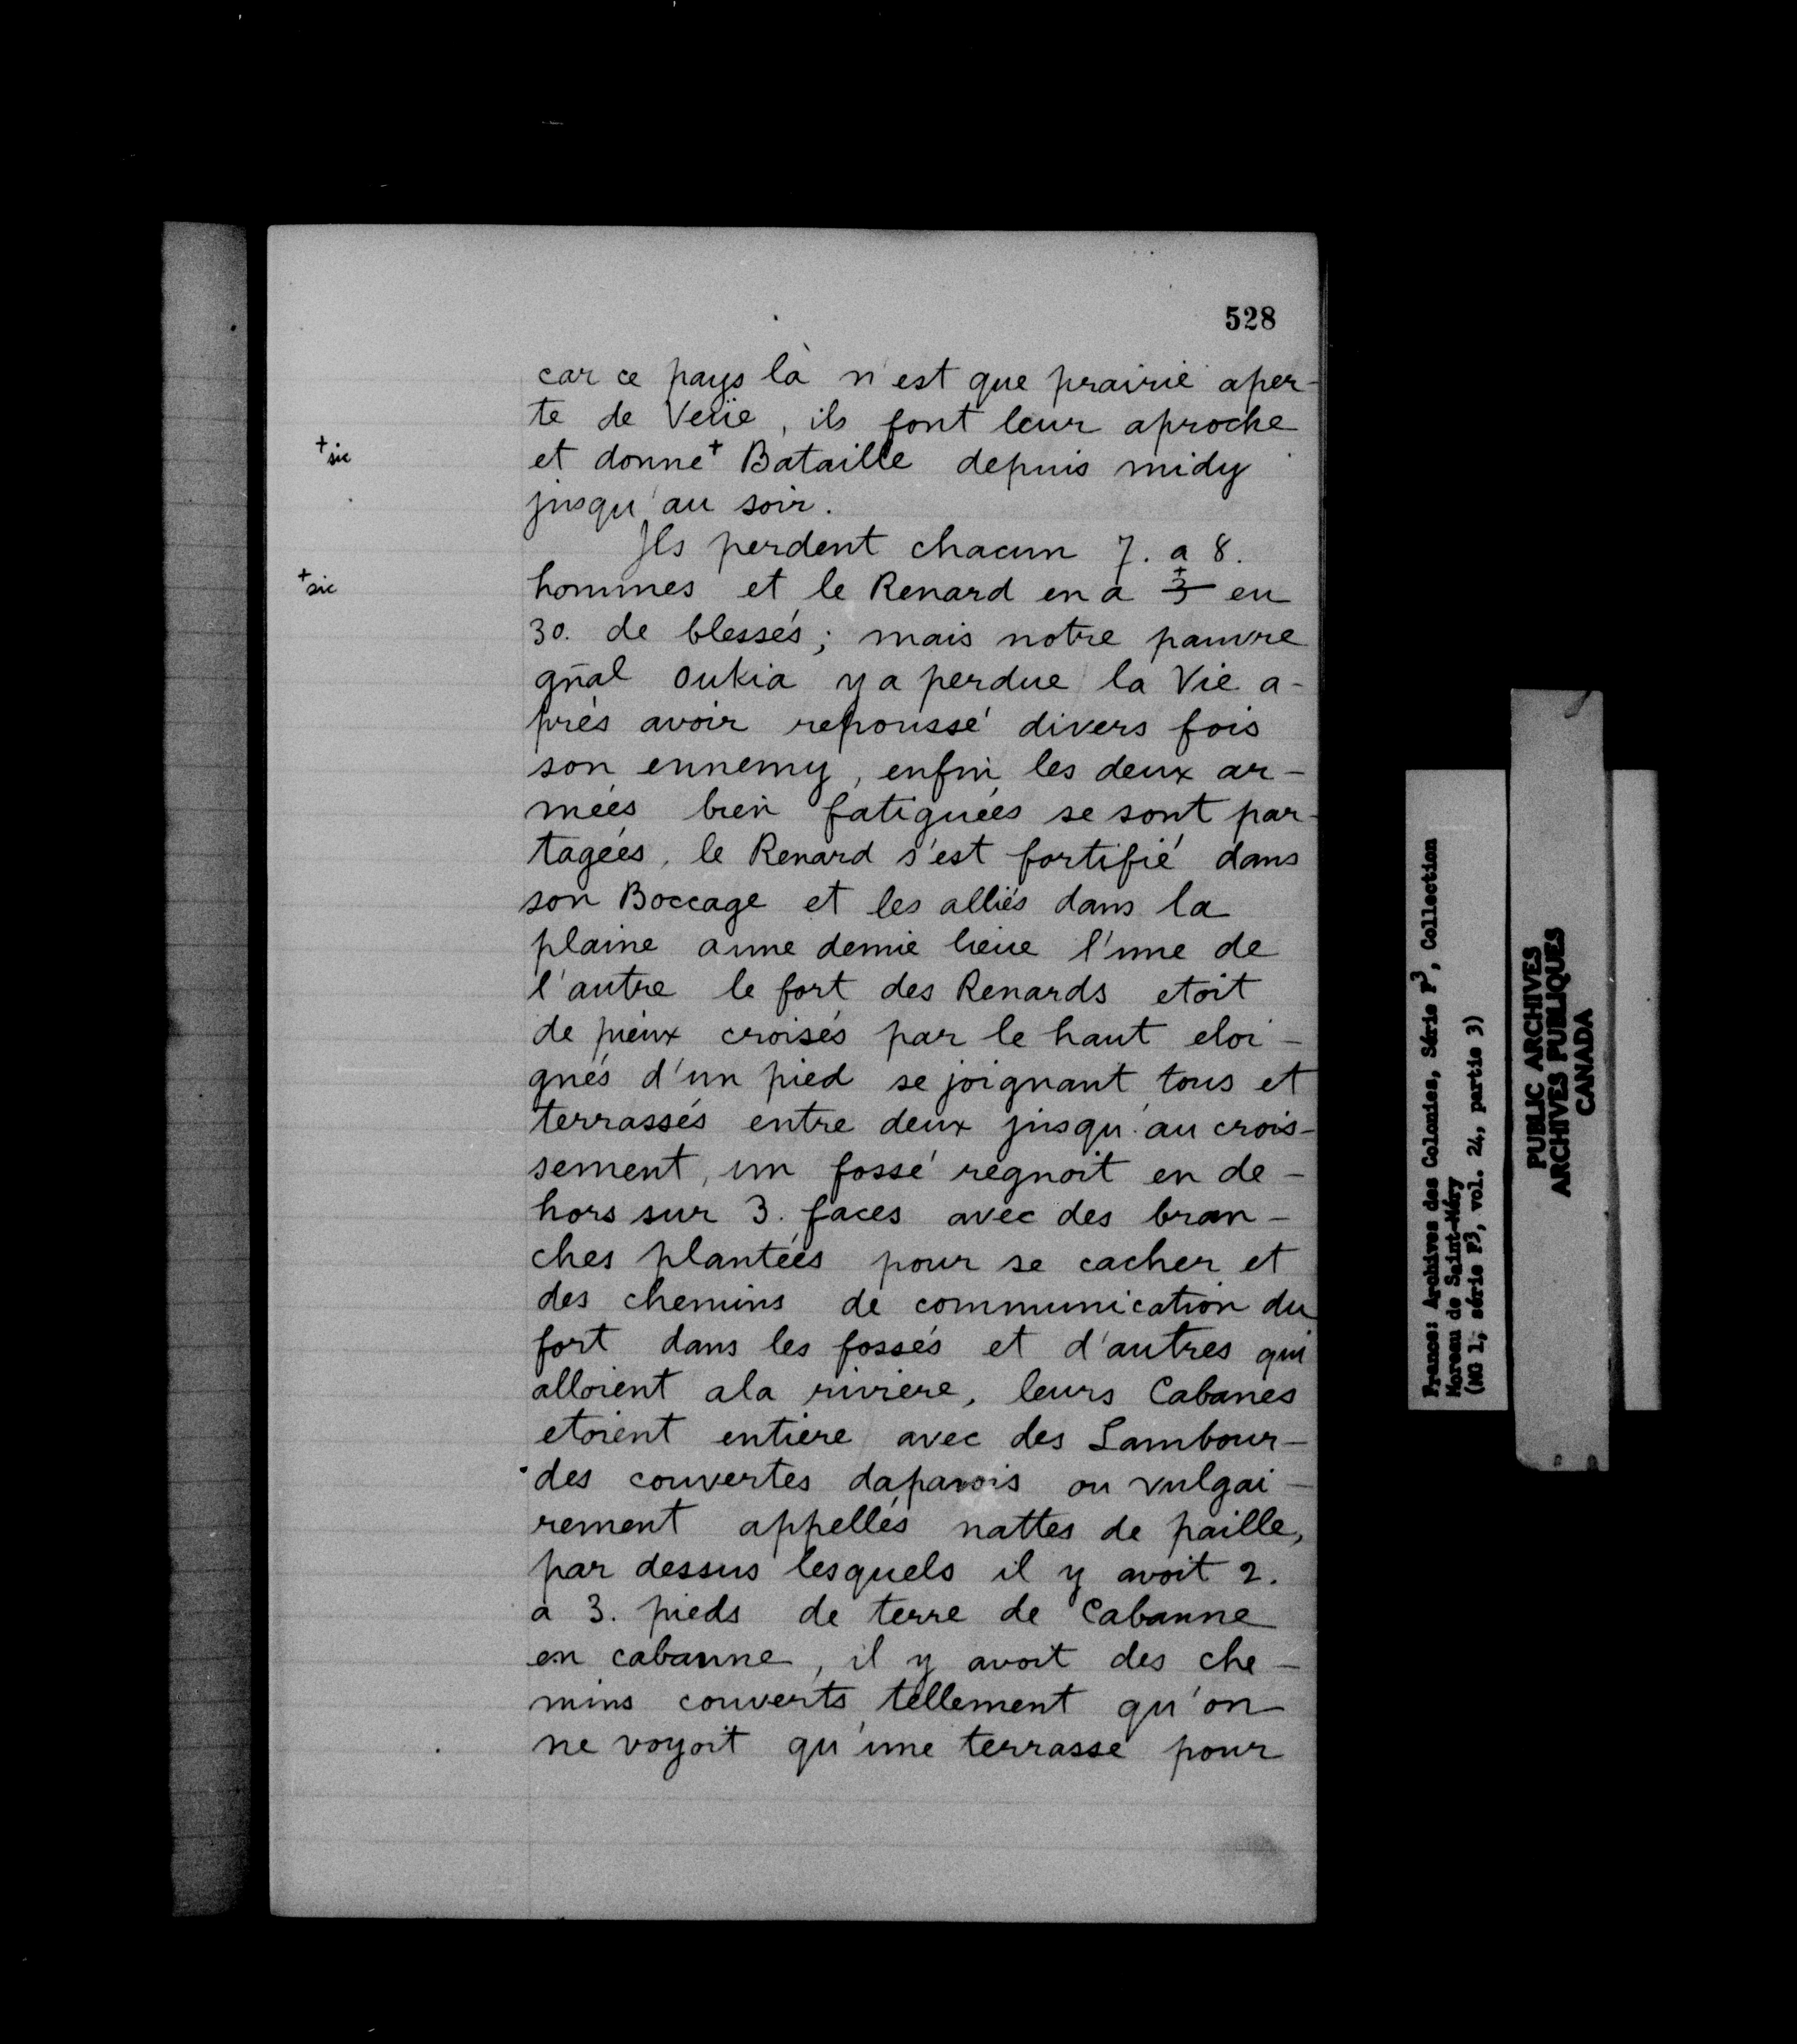 528
car ce pays là n'est que prairie aper-
te de Veüe, ils font leur aproche
+sic
et donne+ Bataille depuis midy
jusqu'au soir.
Ils perdent chacun 7. a 8.
+sic
hommes et le Renard en a 3+ eu
30. de blessés; mais notre pauvre
gñal Oukia y a perdue la Vie a-
près avoir repoussé divers fois
son ennemy, enfin les deux ar-
mées bien fatiguées se sont par-
tagées, le Renard s'est fortifié dans
son Boccage et les alliés dans la
plaine a une demie lieue l'une de
l'autre le fort des Renards etoit
de pieux croisés par le haut eloi-
gnés d'un pied se joignant tous et
terrassés entre deux jusqu'au crois-
sement, un fossé regnoit en de-
hors sur 3. faces avec des bran-
ches plantées pour se cacher et
des chemins de communication du
fort dans les fossés et d'autres qui
alloient a la riviere, leurs Cabanes
etoient entiere avec des Lambour-
des couvertes daparois ou vulgai-
rement appellés nattes de paille,
par dessus lesquels il y avoit 2.
a 3. pieds de terre de Cabanne
en cabanne, il y avoit des che-
mins couverts tellement qu'on
ne voyoit qu'une terrasse pour
France: Archives des Colonies, Série F3, Collection
Moreau de Saint-Méry
(MG 1, série F3, vol. 24, partie 3)
PUBLIC ARCHIVES
ARCHIVES PUBLIQUES
CANADA